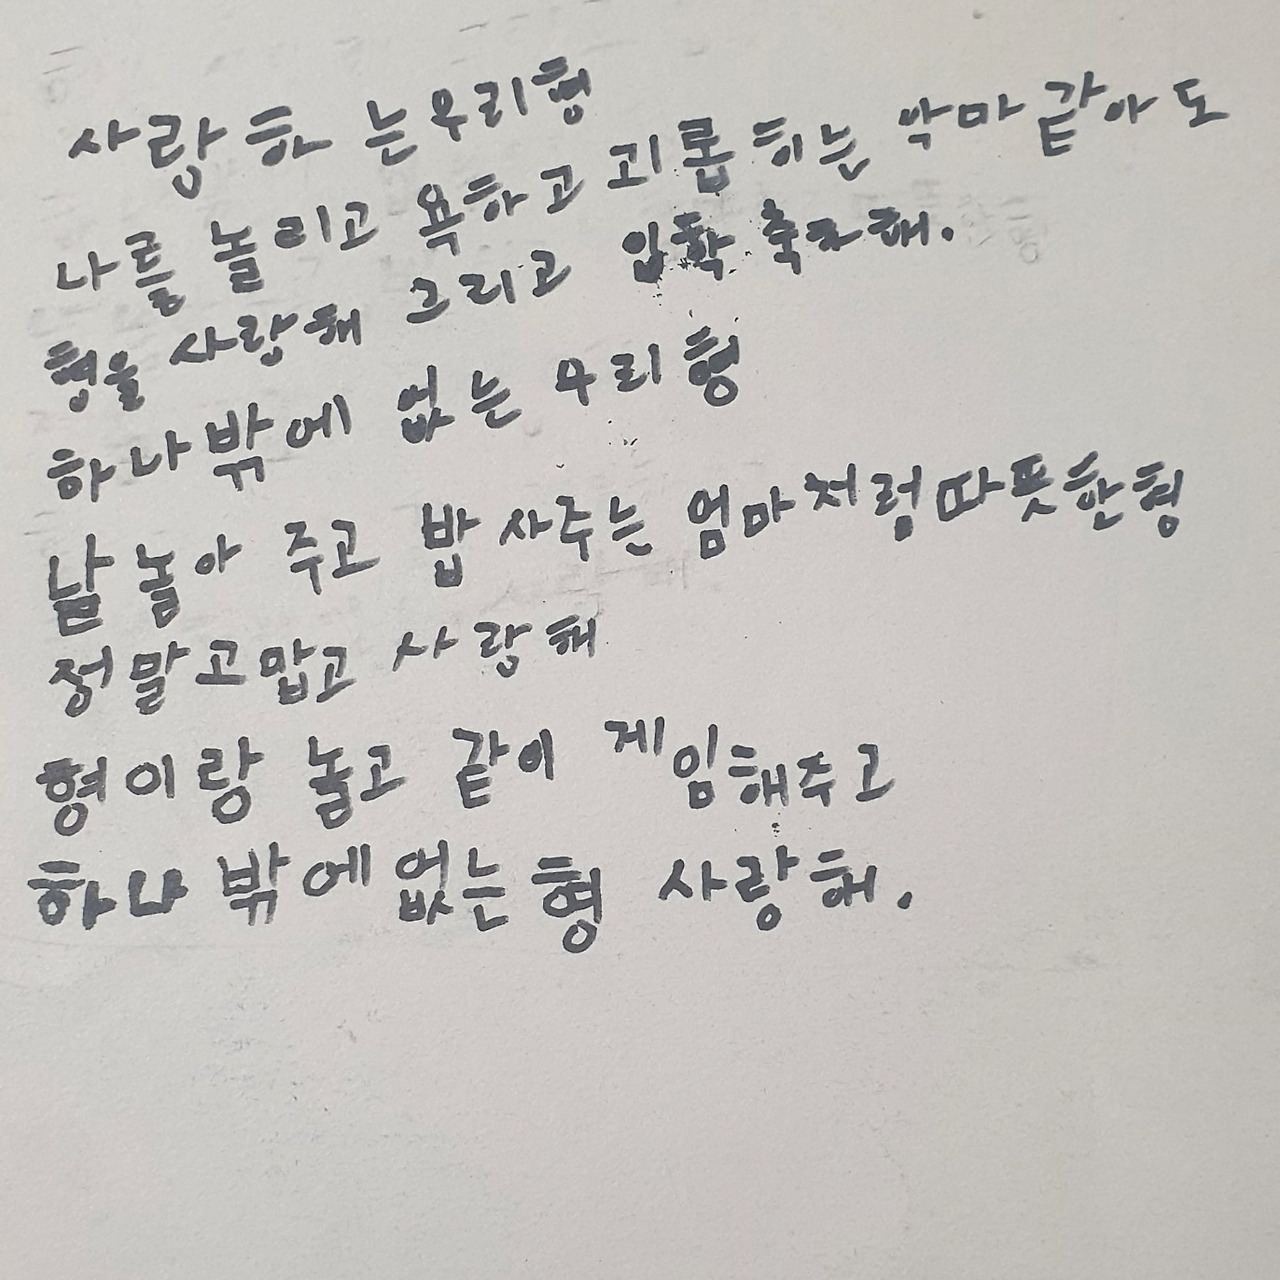 사랑하는우리형
나를 놀리고 욕하고 괴롭히는 악마같아도
형을 사랑해 그리고 입학 축하해.
하나밖에 없는 우리형
날 놀아 주고 밥 사주는 엄마처럼따뜻한형
정말고맙고 사랑해
형이랑 놀고 같이 게임해주고
하나밖에없는형 사랑해.